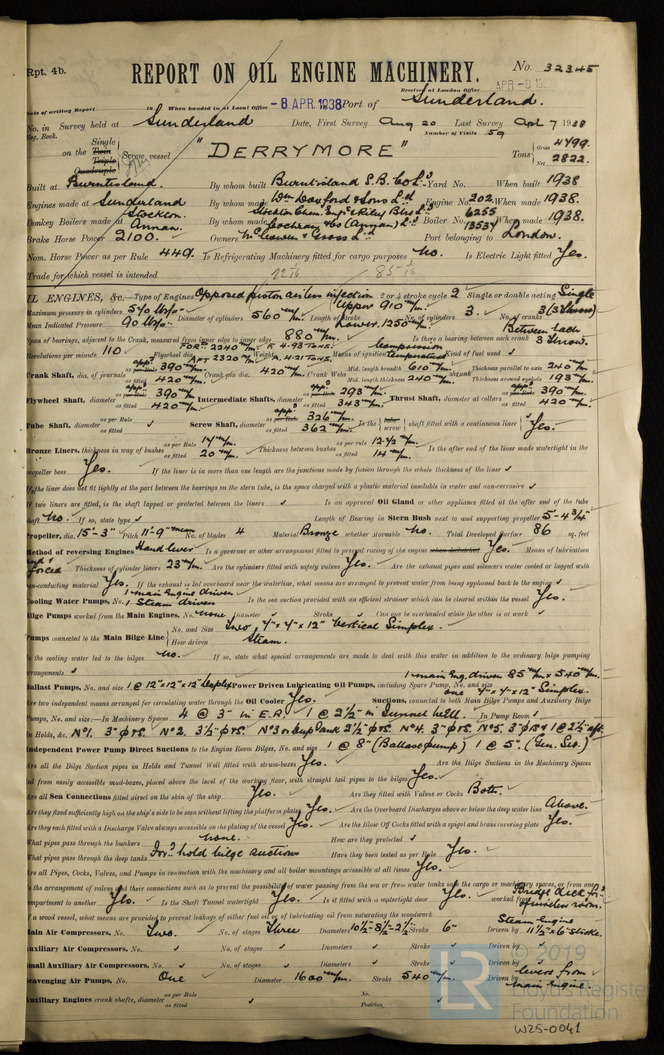 Rpt. 4b.
REPORT ON OIL ENGINE MACHINERY.
No. 32345
Received at London Office
Date of writing Report 19 When handed in at Local Office -8 APR. 1938 Port of Sunderland.
No. in Survey held at Sunderland Date, First Survey Aug 20 Last Survey April 7 1938
Reg. Book. Number of Visits 59
on the Single Twin Triple Quadruple Screw vessel "DERRYMORE" Tons Gross 4799. Net 2822.
Built at Burntisland. By whom built Burntisland S.B. Co Ld. Yard No. When built 1938
Engines made at Sunderland By whom made Wm Doxford & Sons Ld. Engine No. 202. When made 1938.
Donkey Boilers made at Stockton Annan. By whom made Stockton Chem. Engrs & Riley Blrs Ld Cochran & Co (Annan) Ld. Boiler No. 6255 13534 When made 1938.
Brake Horse Power 2100. Owners McCowen & Gross Ld. Port belonging to London.
Nom. Horse Power as per Rule 449. Is Refrigerating Machinery fitted for cargo purposes No. Is Electric Light fitted Yes.
Trade for which vessel is intended
OIL ENGINES, &c.—Type of Engines Opposed piston airless injection 2 or 4 stroke cycle 2 Single or double acting Single
Maximum pressure in cylinders 570 lb/o" Diameter of cylinders 560 m/m. Length of stroke Upper 910 m/m. Lower. 1250 m/m. No. of cylinders 3. No. of cranks 3 (3 throw)
Mean Indicated Pressure 90 lb/o"
Span of bearings, adjacent to the Crank, measured from inner edge to inner edge 880 m/m. Is there a bearing between each crank Between each 3 throw.
Revolutions per minute 110. Flywheel dia. FORD 2240 m/m. AFT 2320 m/m. Weight F 4.93 TONS. A 4.21 TONS. Means of ignition Compression temperature Kind of fuel used ✓
Crank Shaft, dia. of journals as per Rule appd 390 m/m. as fitted 420 m/m. Crank pin dia. 420 m/m. Crank Webs Mid. length breadth 610 m/m. Mid. length thickness 240 m/m. Thickness parallel to axis 240 m/m. Thickness around eyehole 193 m/m.
Flywheel Shaft, diameter as per Rule appd 390 m/m. as fitted 420 m/m. Intermediate Shafts, diameter as per Rule appd 293 m/m. as fitted 343 m/m. Thrust Shaft, diameter at collars as per Rule appd 390 m/m. as fitted 420 m/m.
Tube Shaft, diameter as per Rule as fitted ✓ Screw Shaft, diameter as per Rule appd 326 m/m. as fitted 362 m/m. Is the tube screw shaft fitted with a continuous liner Yes.
Bronze Liners, thickness in way of bushes as per Rule 17 m/m. as fitted 20 m/m. Thickness between bushes as per rule 12.75 m/m. as fitted 14 m/m. Is the after end of the liner made watertight in the
propeller boss Yes. If the liner is in more than one length are the junctions made by fusion through the whole thickness of the liner ✓
If the liner does not fit tightly at the part between the bearings in the stern tube, is the space charged with a plastic material insoluble in water and non-corrosive ✓
If two liners are fitted, is the shaft lapped or protected between the liners ✓ Is an approved Oil Gland or other appliance fitted at the after end of the tube
shaft No. If so, state type ✓ Length of Bearing in Stern Bush next to and supporting propeller 5'-4 3/4"
Propeller, dia. 15'-3" Pitch 11'-9" mean No. of blades 4 Material Bronze whether Moveable No. Total Developed Surface 86 sq. feet
Method of reversing Engines Hand lever Is a governor or other arrangement fitted to prevent racing of the engine when declutched Yes. Means of lubrication
forced Thickness of cylinder liners 23 m/m. Are the cylinders fitted with safety valves Yes. Are the exhaust pipes and silencers water cooled or lagged with
non-conducting material Yes. If the exhaust is led overboard near the waterline, what means are arranged to prevent water from being syphoned back to the engine ✓
Cooling Water Pumps, No. 1 main engine driven 1 Steam driven Is the sea suction provided with an efficient strainer which can be cleared within the vessel Yes.
Bilge Pumps worked from the Main Engines, No. None Diameter ✓ Stroke ✓ Can one be overhauled while the other is at work ✓
Pumps connected to the Main Bilge Line No. and Size Two, 7" x 7" x 12" Vertical Simplex.
How driven Steam.
Is the cooling water led to the bilges No. If so, state what special arrangements are made to deal with this water in addition to the ordinary bilge pumping
arrangements ✓
Ballast Pumps, No. and size 1 @ 12" x 12" x 12" Duplex Power Driven Lubricating Oil Pumps, including Spare Pump, No. and size 1 main Eng. driven 85 m/m x 540 m/m. one 7" x 7" x 12" Simplex.
Are two independent means arranged for circulating water through the Oil Cooler Yes. Suctions, connected to both Main Bilge Pumps and Auxiliary Bilge
Pumps, No. and size:—In Machinery Spaces 4 @ 3" in E.R. 1 @ 2 1/2" in Tunnel well. In Pump Room ✓
In Holds, &c. No 1. 3" P&S. No 2. 3 1/2" P&S. No 3 or deep tank 2 1/2" P&S No 4. 3" P&S. No 5. 3" P&S & 1 @ 2 1/2" aft.
Independent Power Pump Direct Suctions to the Engine Room Bilges, No. and size 1 @ 8" (Ballast pump) 1 @ 5". (Gen. Ser.)
Are all the Bilge Suction pipes in Holds and Tunnel Well fitted with strum-boxes Yes. Are the Bilge Suctions in the Machinery Spaces
led from easily accessible mud-boxes, placed above the level of the working floor, with straight tail pipes to the bilges Yes.
Are all Sea Connections fitted direct on the skin of the ship Yes. Are they fitted with Valves or Cocks Both.
Are they fixed sufficiently high on the ship's side to be seen without lifting the platform plates Yes. Are the Overboard Discharges above or below the deep water line Above.
Are they each fitted with a Discharge Valve always accessible on the plating of the vessel Yes. Are the Blow Off Cocks fitted with a spigot and brass covering plate Yes.
What pipes pass through the bunkers None. How are they protected ✓
What pipes pass through the deep tanks Ford hold bilge suctions Have they been tested as per Rule Yes.
Are all Pipes, Cocks, Valves, and Pumps in connection with the machinery and all boiler mountings accessible at all times Yes.
Is the arrangement of valves and their connections such as to prevent the possibility of water passing from the sea or from water tanks into the cargo or machinery spaces, or from one
compartment to another Yes. Is the Shaft Tunnel watertight Yes. Is it fitted with a watertight door Yes. worked from
If a wood vessel, what means are provided to prevent leakage of either fuel oil or lubricating oil from saturating the woodwork
Main Air Compressors, No. Two. No. of stages Three Diameters 10 1/4-8 1/2-2 1/2" Stroke 6" Driven by Steam Engine 11 1/2" x 6" stroke.
Auxiliary Air Compressors, No. ✓ No. of stages ✓ Diameters ✓ Stroke ✓ Driven by ✓
Small Auxiliary Air Compressors, No. ✓ No. of stages ✓ Diameters ✓ Stroke ✓ Driven by ✓
Scavenging Air Pumps, No. One Diameter 1600 m/m. Stroke 540 m/m. Driven by levers from Main Engine.
Auxiliary Engines crank shafts, diameter as per Rule as fitted ✓ No. Position ✓
© 2019
LR
Lloyd's Register
Foundation
W25-0041